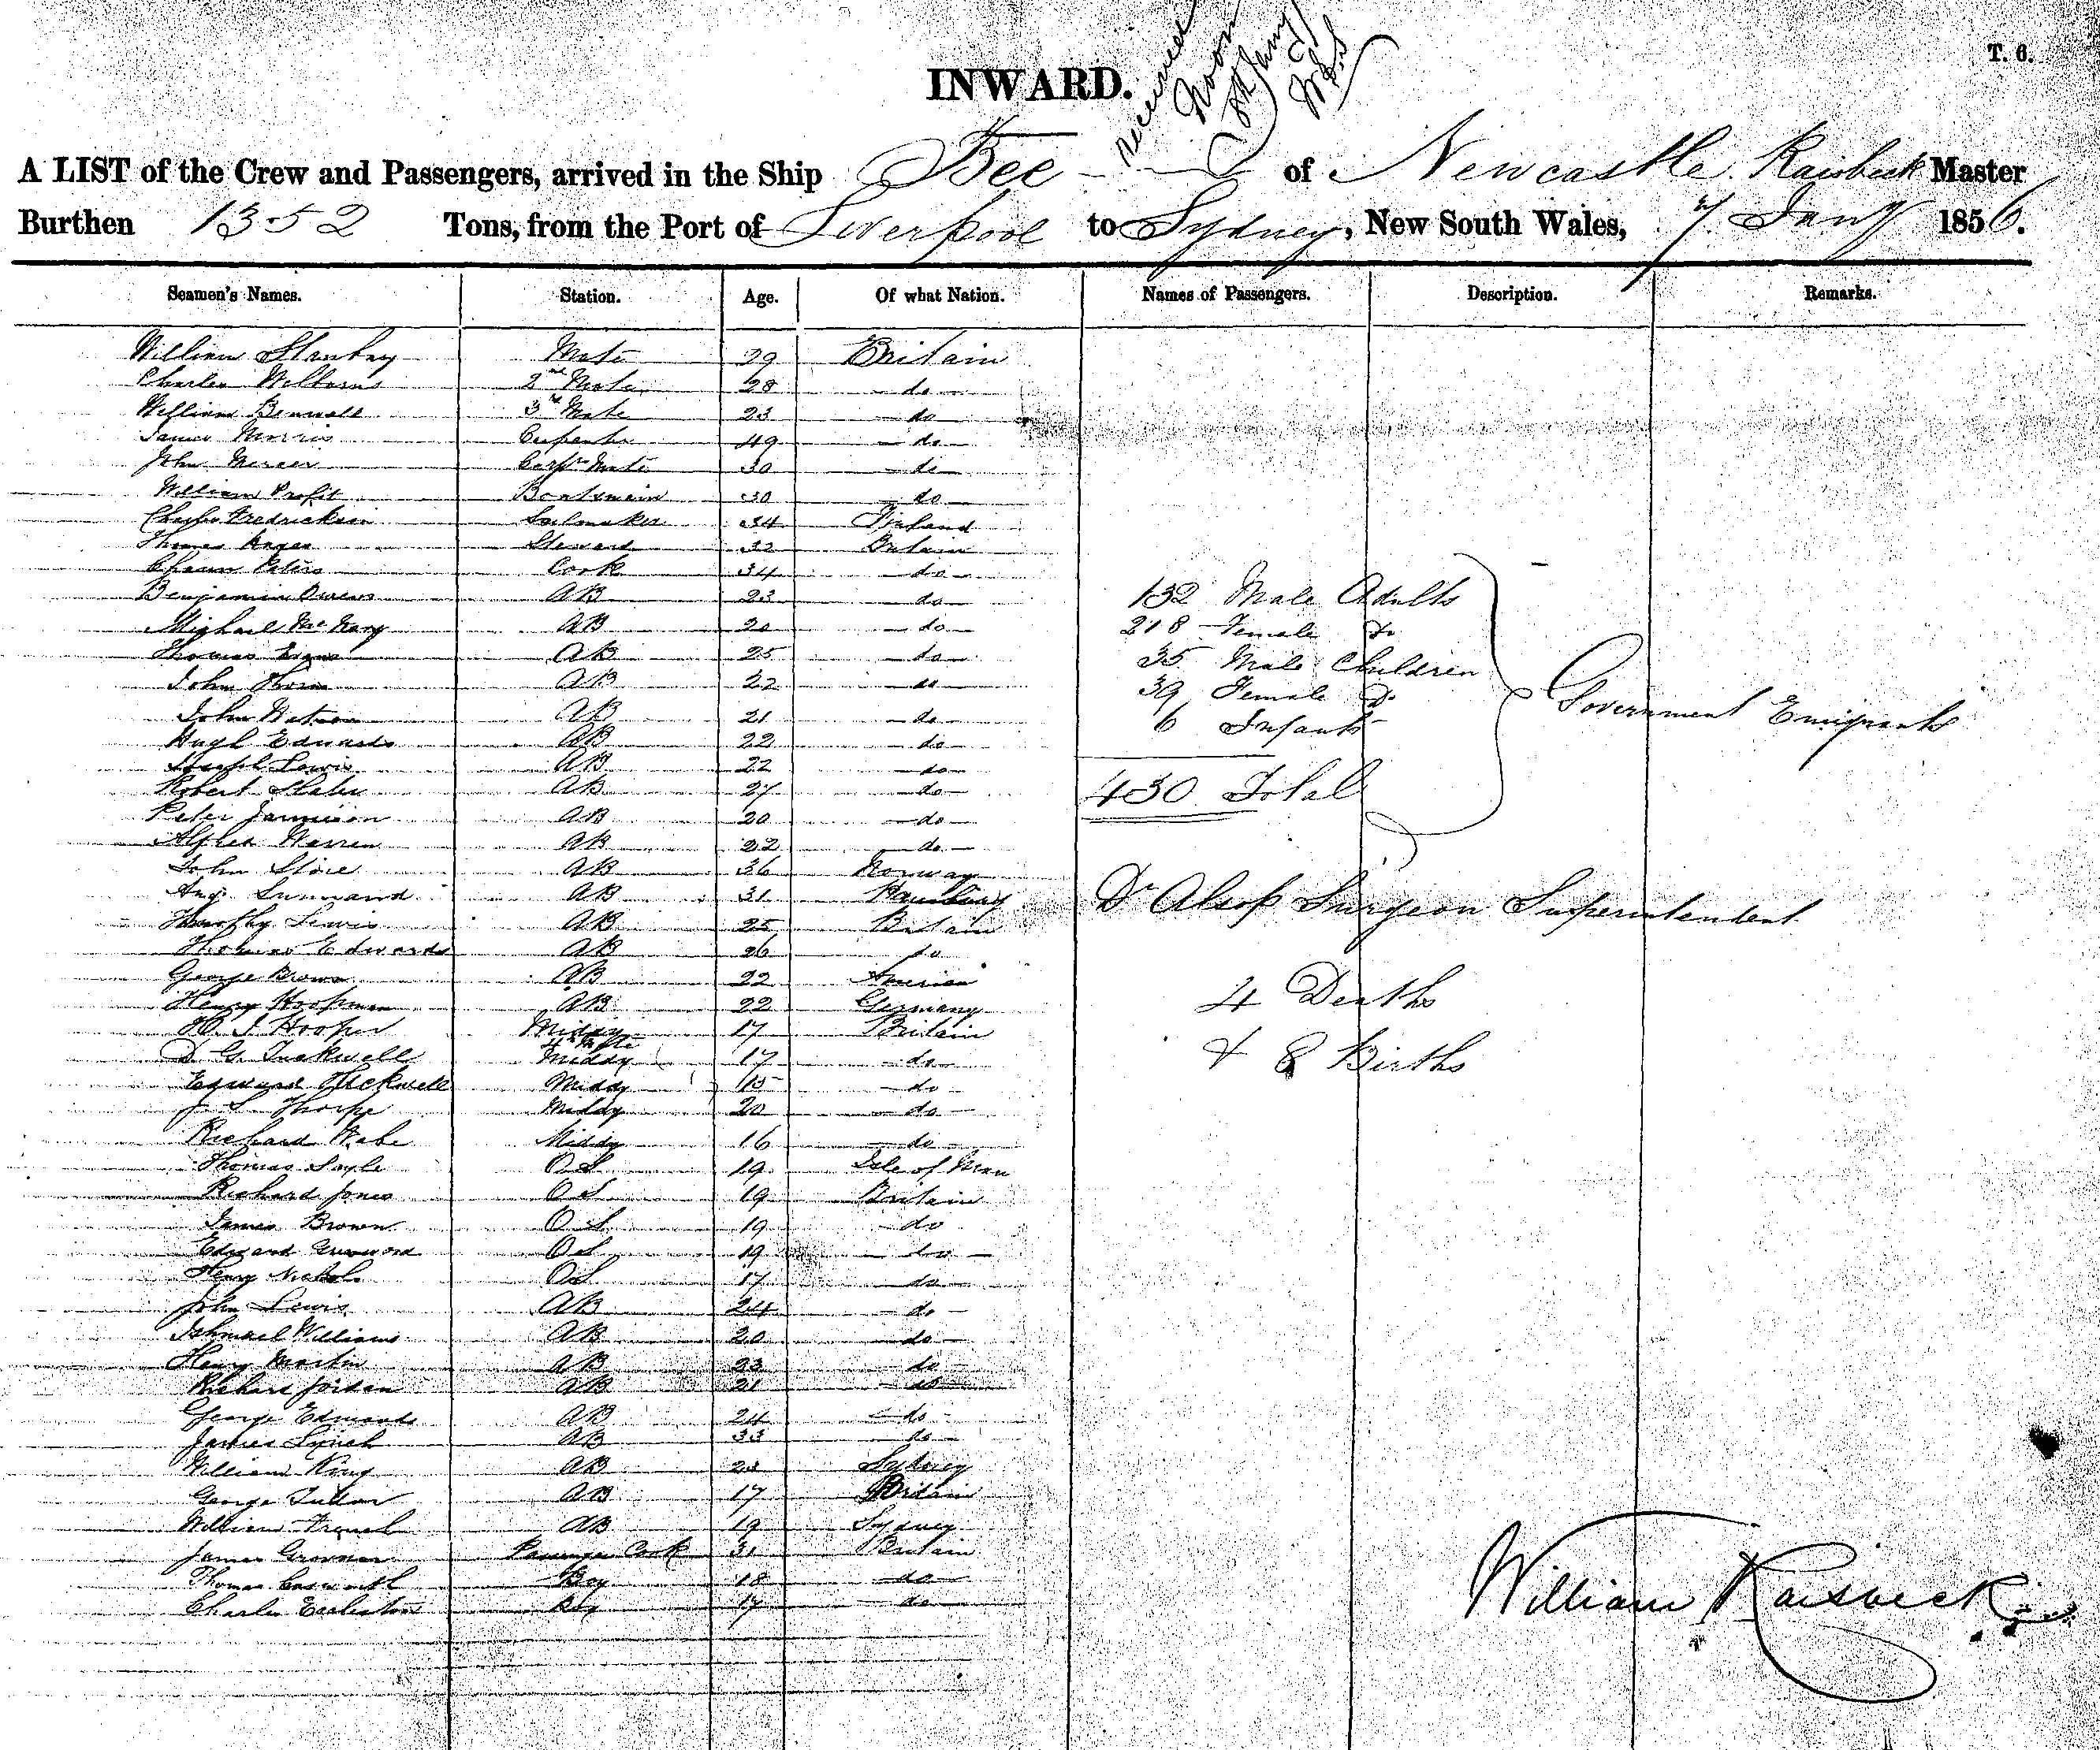 T. 6.
INWARD.
A LIST of the Crew and Passengers, arrived in the Ship Bee of Newcastle Raisbeck Master
Burthen 1352 Tons, from the Port of Liverpool to Sydney, New South Wales, 7 Jany 1856.
Seamen's Names. Station. Age. Of what Nation. Names of Passengers. Description. Remarks.
William Mate 29 Britain
Charles 2nd Mate 28 do
William 3rd Mate 23 do
James Morris Carpenter 49 do
John Mercer Carpr Mate 30 do
William Profit Boatswain 30 do
Charles Fredrickson Sailmaker 34
Thomas Steward 32 Britain
Peters Cook 34 do
Benjamin Owens AB 23 do 132 Male Adults
Michael AB 20 do 218 Female Do
Thomas Evans AB 25 do 35 Male Children
John AB 22 do 39 Female Do
John Watson AB 21 do 6 Infants
Government Emigrants
Hugh Edwards AB 22 do
Joseph Lewis AB 22 do
Robert Slater AB 27 do 430 Total
Peter Jamieson AB 20 do
Alfred Warren AB 22 do
John AB 36 Norway
AB 31 Hamburg Dr Alsop Surgeon Superintendent
Timothy Lewis AB 25 Britain
Thomas Edwards AB 26 do
George Brown AB 22 America
Henry Hoopman AB 22 Germany 4 Deaths
Hooper Middy 17 Britain
G. Tuckwell Middy 17 do & 8 Births
Edward Tuckwell Middy 15 do
J S Thorpe Middy 20 do
Richard Middy 16 do
Thomas Sayle OS 19 Isle of Man
Richard Jones OS 19 Britain
James Brown OS 19 do
Edward OS 19 do
Henry Nichols OS 17 do
John Lewis AB 24 do
Ishmael Williams AB 20 do
Henry Martin AB 23 do
Richard Jordan AB 21 do
George Edwards AB 24 do
James Lynch AB 33 do
William King AB 23 Sydney
George AB 17 Britain
William French AB 19 Sydney
James Passenger Cook 31 Britain
Thomas Boy 18 do
Charles Eccleston Boy 17 do
William Raisbeck